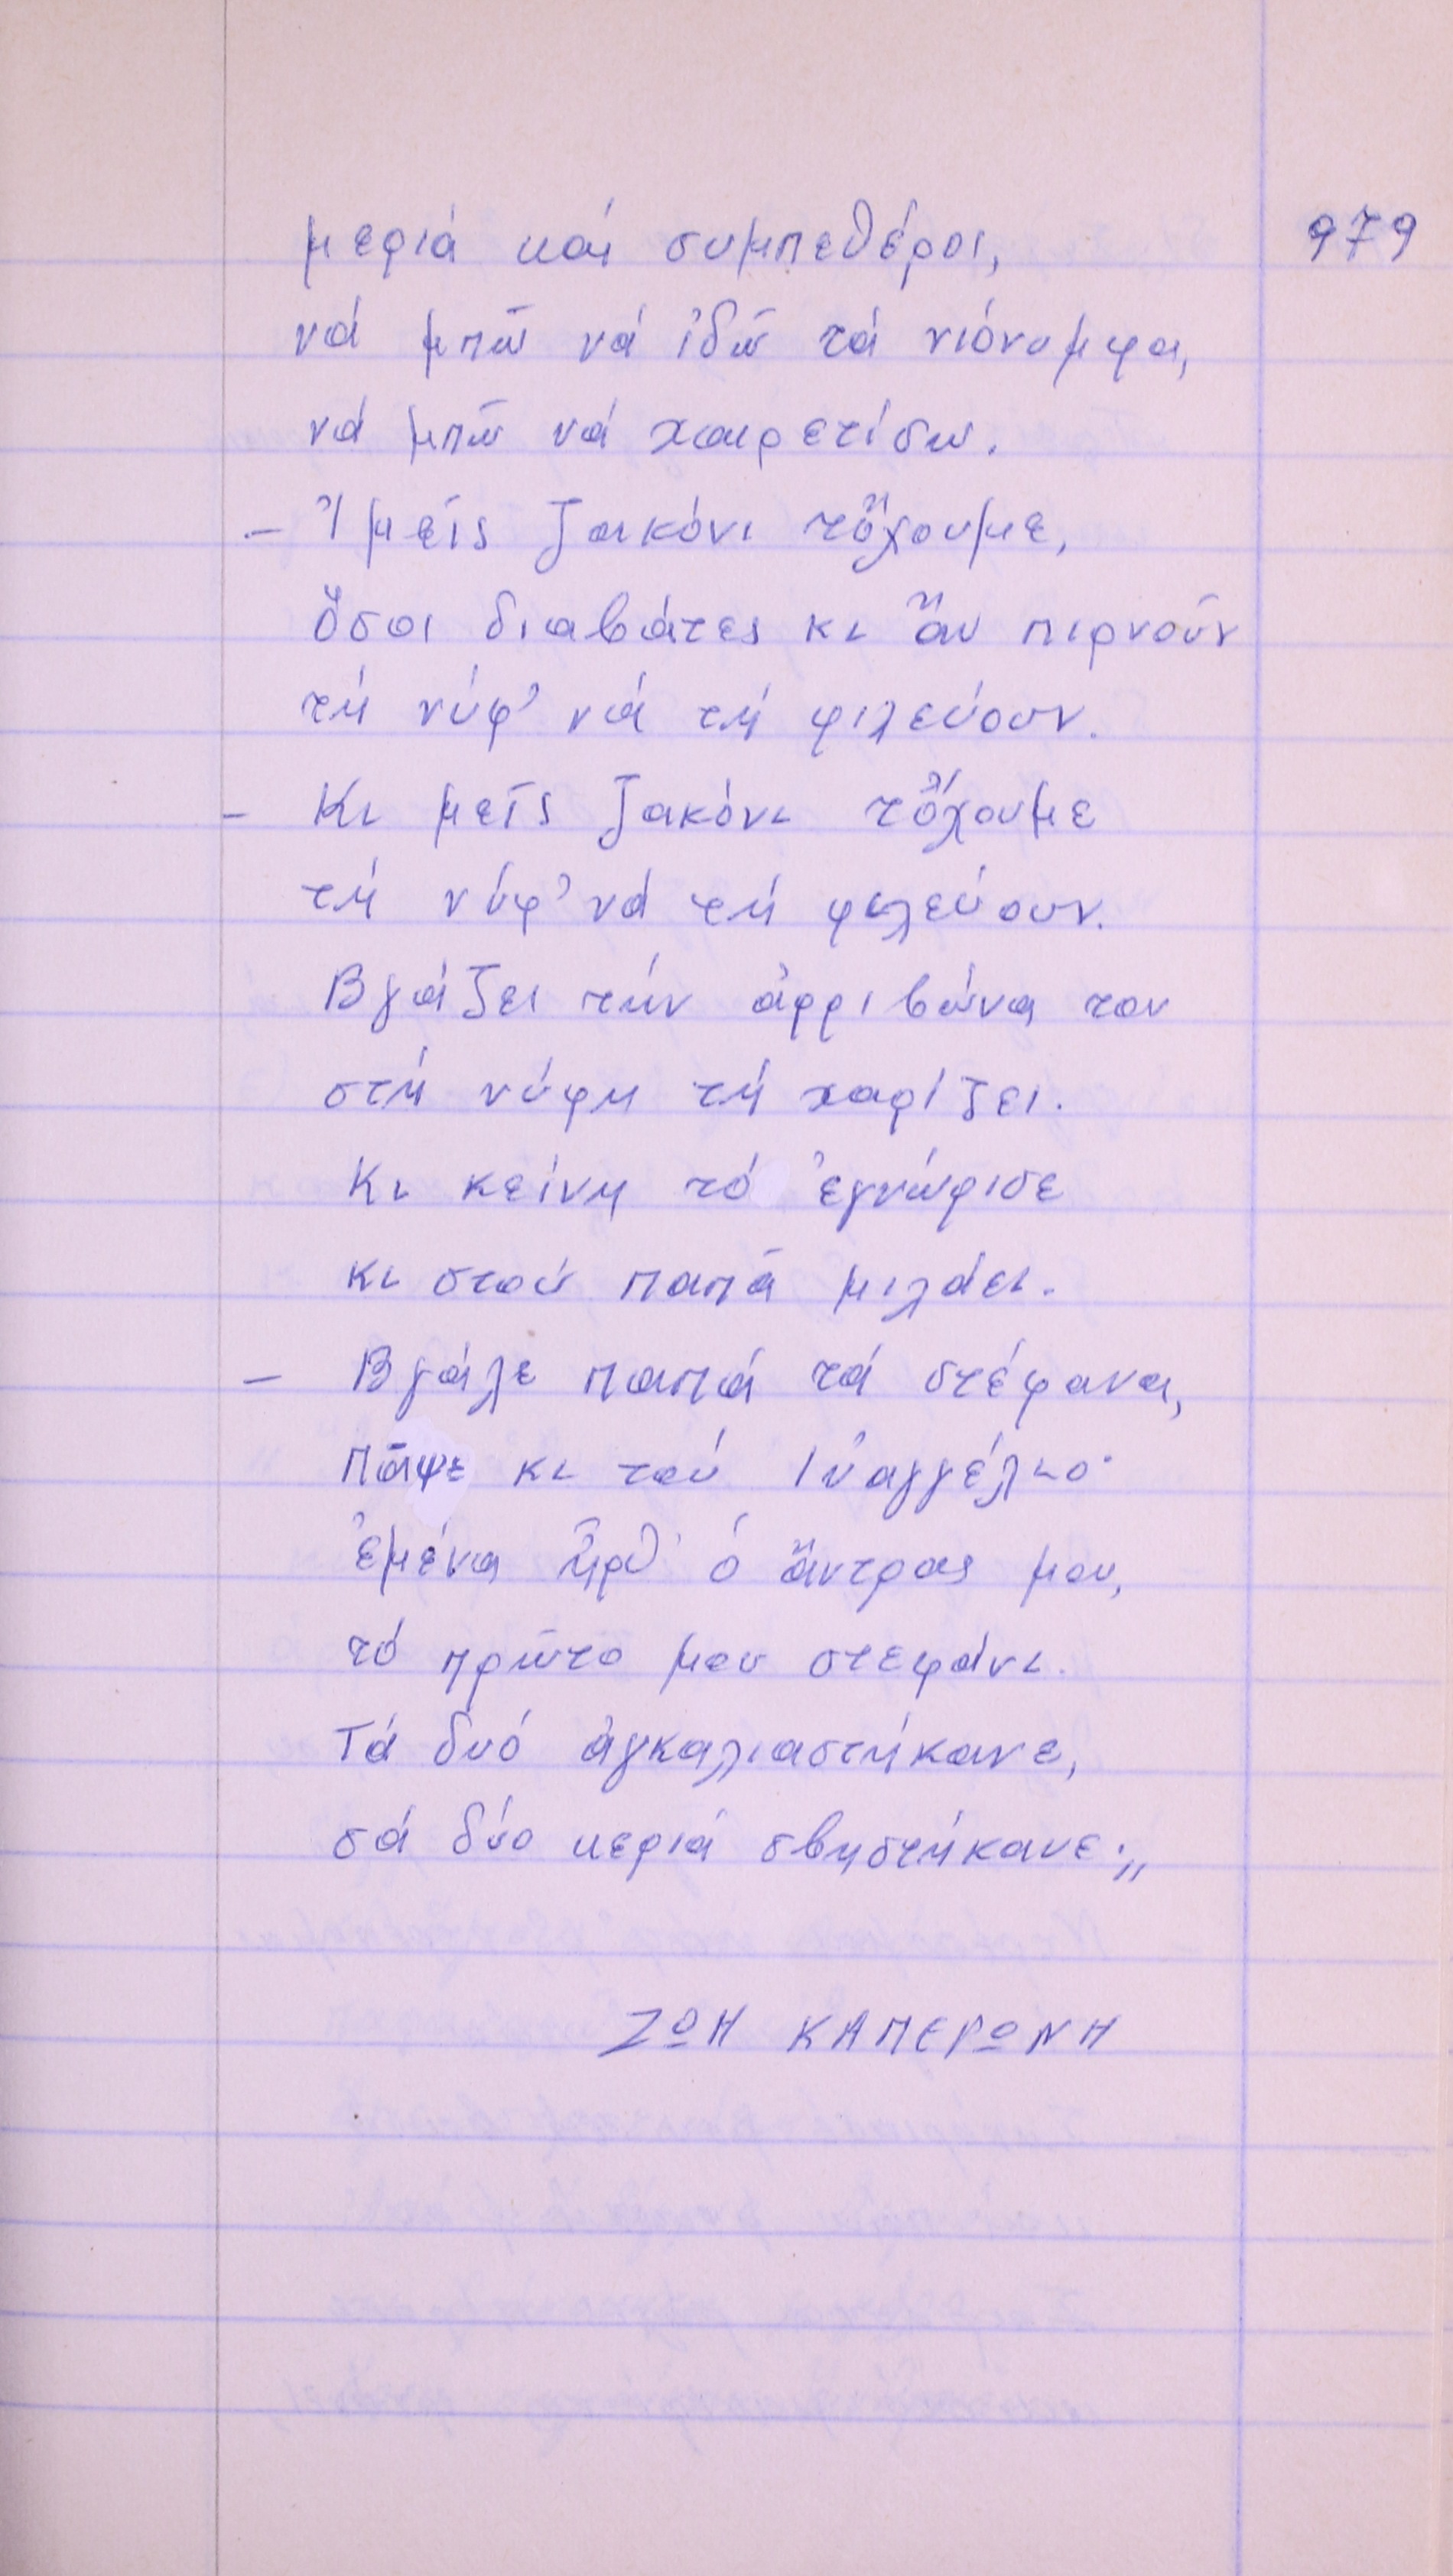 979
μεριά καί συμπεθέροι,
νά μπῶ νά ἰδῶ τά νιόνυμφα,
νά μπῶ νά χαιρετίσω.
– Ἰμεῖς ζακόνι τὄχουμε,
ὅσοι διαβάτες κι ἄν πιρνοῦν
τή νύφ’ νά τή φιλεύουν.
– Κι μεῖς ζακόνι τὄχουμε
τή νύφ’ νά τή φιλεύουν.
Βγάζει τήν ἀρριβώνα του
στή νύφη τή χαρίζει.
Κι κείνη τό ἐγνώρισε
κι στού παπᾶ μιλάει.
– Βγάλε παπά τά στέφανα,
πᾶψε κι τού Ἰὐαγγέλιο·
ἐμένα ἦρθ’ ὁ ἄντρας μου,
τό πρῶτο μου στεφάνι.
Τά δυό ἀγκαλιαστήκανε,
σά δύο κεριά σβηστήκανε.„
ΖΩΗ ΚΑΠΕΡΩΝΗ